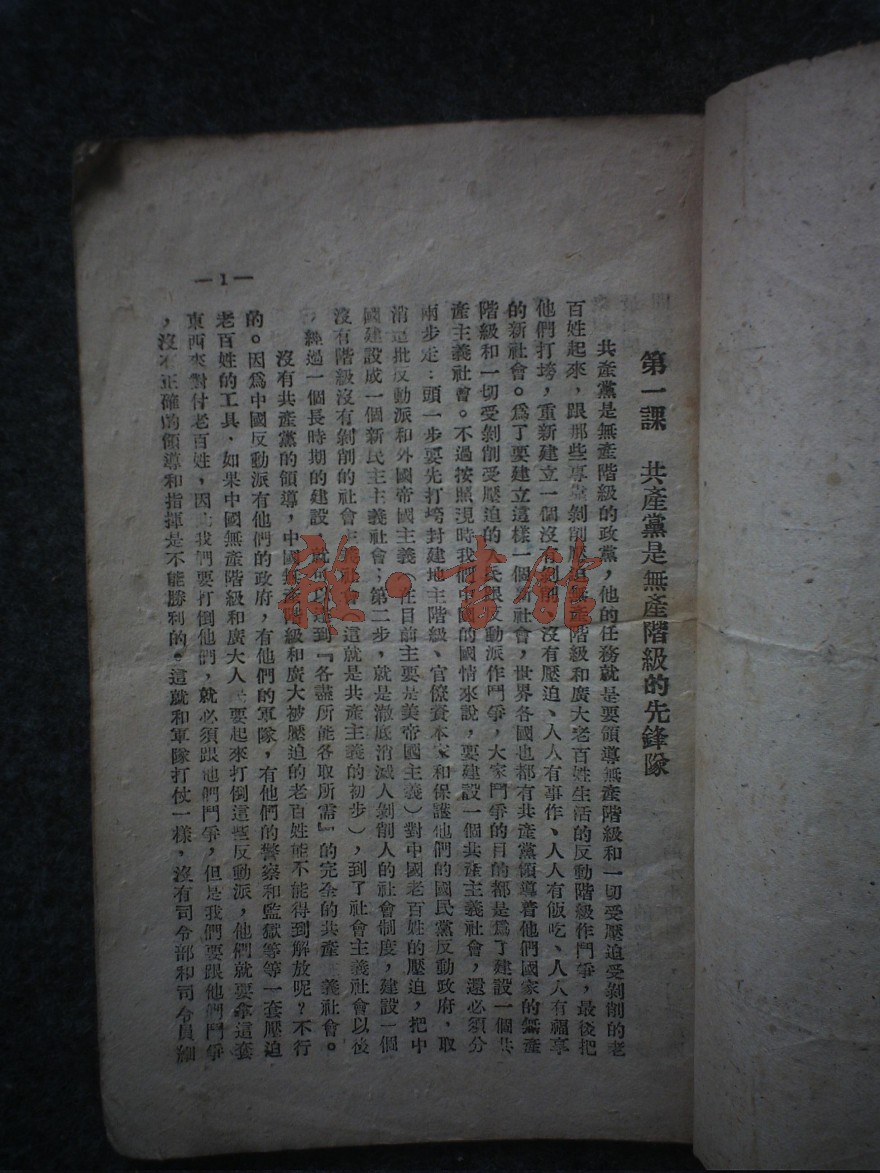 第一課　共產黨是無產階級的先鋒隊
共產黨是無產階級的政黨，他的任務就是要領導無產階級和一切受壓迫受剝削的老
百姓起來，跟那些專靠剝削壓迫無產階級和廣大老百姓生活的反動階級作鬥爭，最後把
他們打垮，重新建立一個沒有剝削、沒有壓迫、人人有事作、人人有飯吃、人人有福享
的新社會。爲了要建立這樣一個新社會，世界各國也都有共產黨領導着他們國家的無產
階級和一切受剝削受壓迫的人民跟反動派作鬥爭，大家鬥爭的目的都是爲了建設一個共
產主義社會。不過按照現時我們中國的國情來說，要建設一個共產主義社會，還必須分
兩步走：頭一步要先打垮封建地主階級、官僚資本家和保護他們的國民黨反動政府，取
消這批反動派和外國帝國主義（在目前主要是美帝國主義）對中國老百姓的壓迫，把中
國建設成一個新民主主義社會；第二步，就是澈底消滅人剝削人的社會制度，建設一個
沒有階級沒有剝削的社會主義社會（這就是共產主義的初步），到了社會主義社會以後
，經過一個長時期的建設，就可以達到『各盡所能各取所需』的完全的共產主義社會。
沒有共產黨的領導，中國無產階級和廣大被壓迫的老百姓能不能得到解放呢？不行
的。因爲中國反動派有他們的政府，有他們的軍隊，有他們的警察和監獄等等一套壓迫
老百姓的工具，如果中國無產階級和廣大人民要起來打倒這些反動派，他們就要拿這套
東西來對付老百姓，因此我們要打倒他們，就必須跟他們鬥爭，但是我們要跟他們鬥爭
，沒有正確的領導和指揮是不能勝利的。這就和軍隊打仗一樣，沒有司令部和司令員
—1—
雜·書館